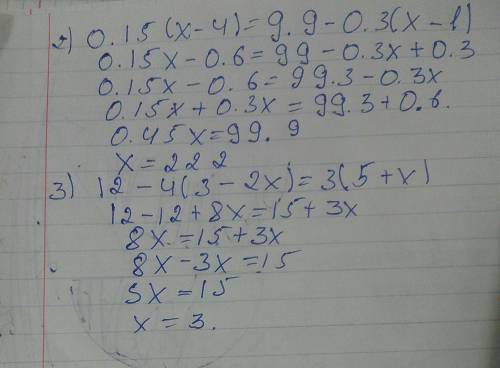 2) 0.15(x-4)=9.9-0.3(x-1)
0.15x-0.6=99-0.3x+0.3
0.15x-0.6=99.3-0.3x
0.15x+0.3x=99.3+0.6.
0.45x=99.9
x=222
3) 12-4(3-2x)=3(5+x)
12-12+8x=15+3x
8x=15+3x
8x-3x=15
5x=15
x=3.